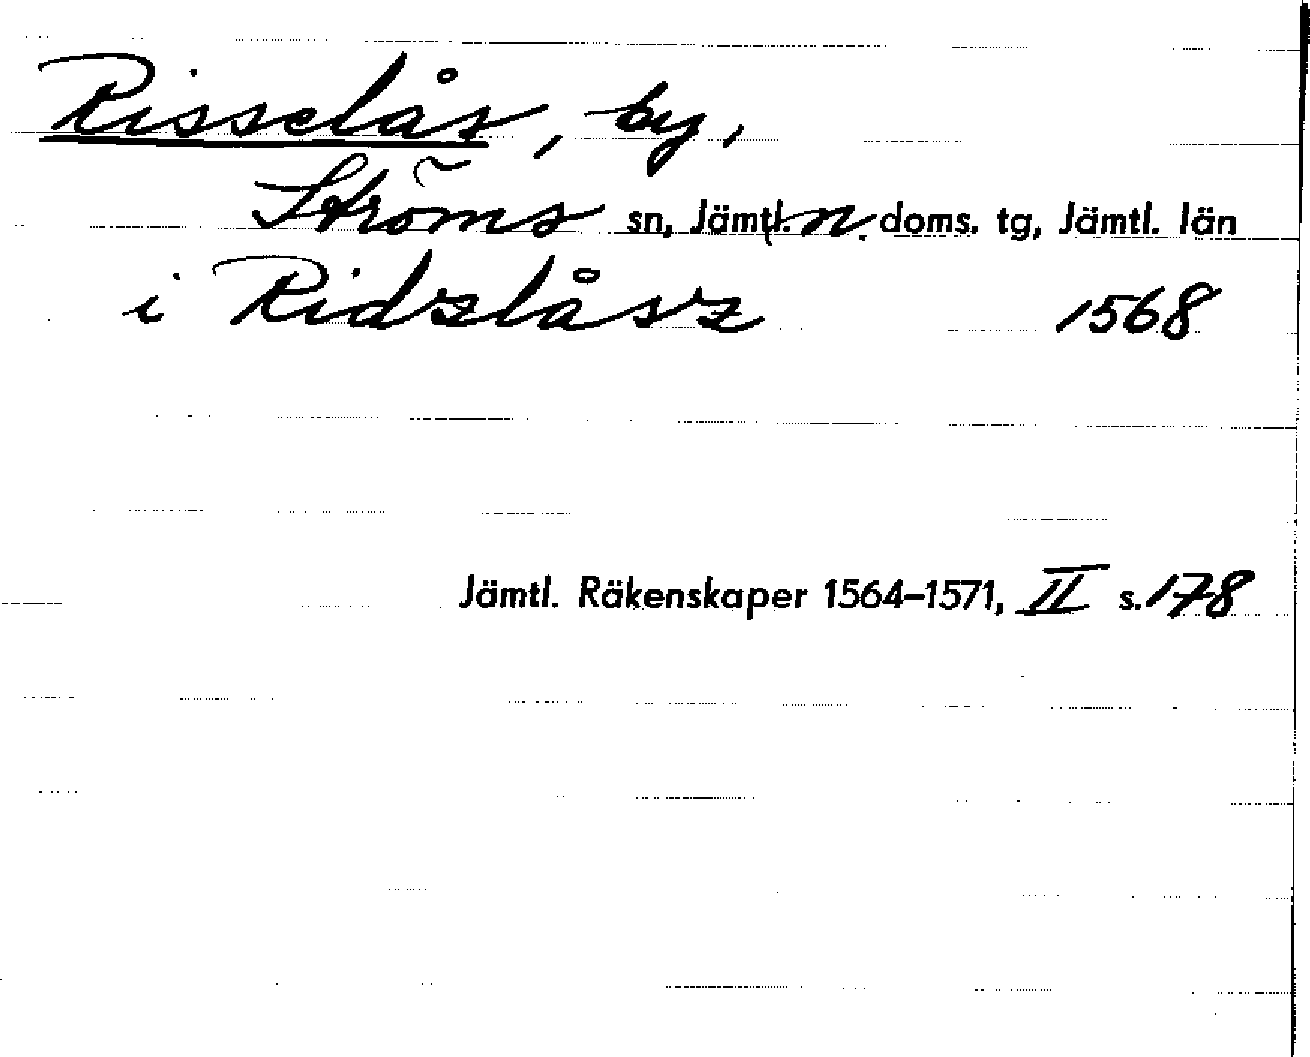 Risselås, by,
Ströms sn, Jämtl. n. doms. tg, Jämtl. län
i Ridzlåsz 1568
Jämtl. Räkenskaper 1564–1571, II s. 178